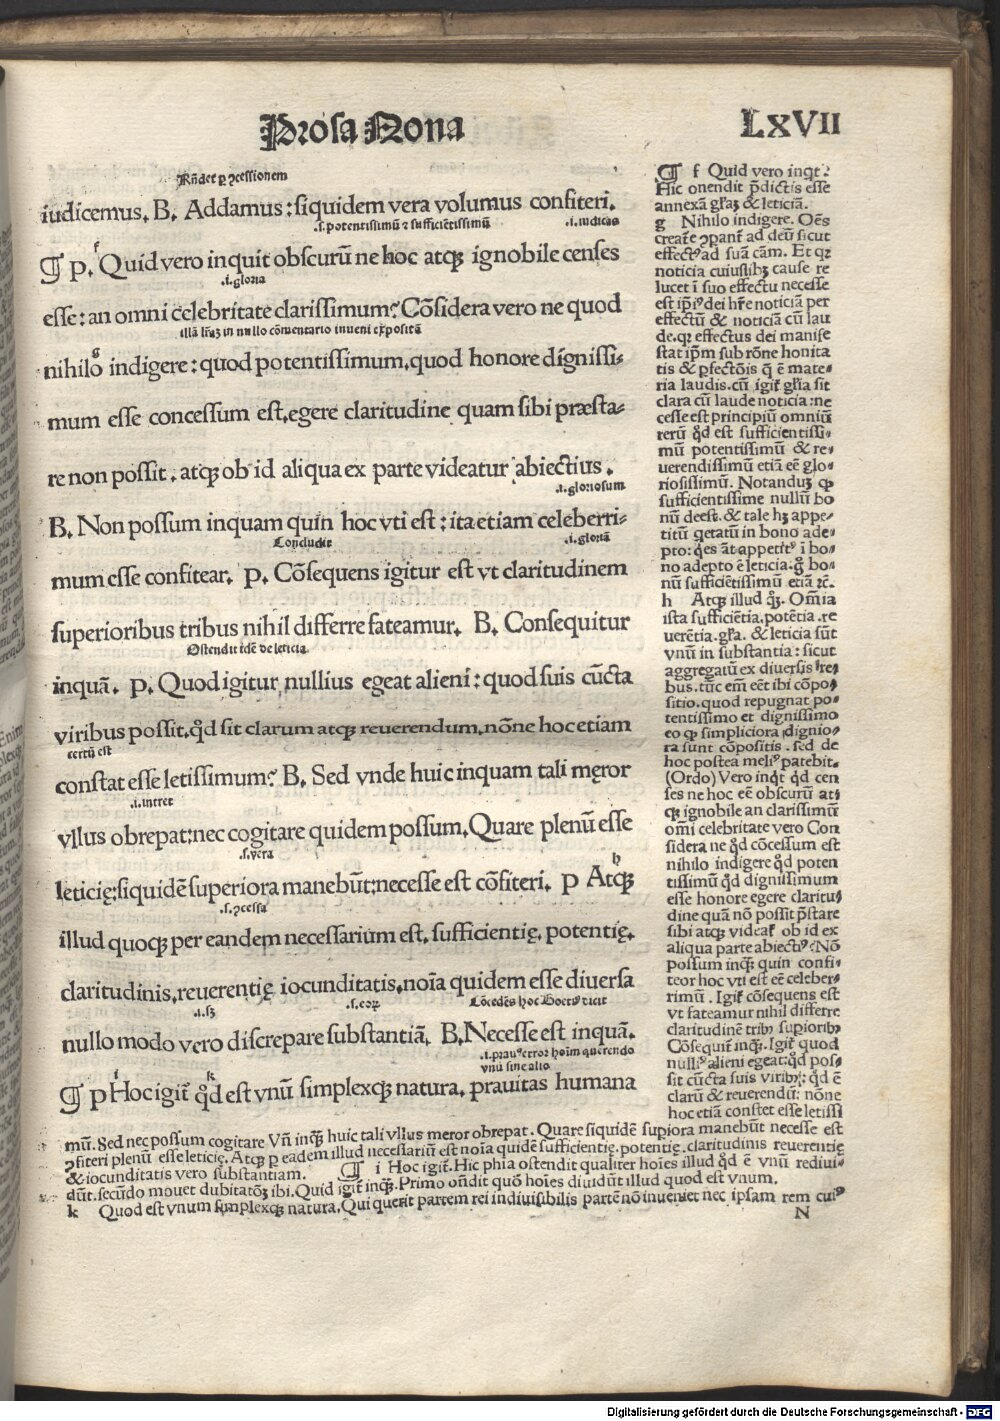 Prosa Nona
LxVII
Rñdet ꝑ ꝯcessionem
iudicemus. B. Addamus: siquidem vera volumus confiteri.
.s. potentissimũ ⁊ sufficiẽtissimũ .i. iudicas
f
¶ p. Quid vero inquit obscurũ ne hoc atqꝫ ignobile censes
.i. gloria
esse: an omni celebritate clarissimum? Cõsidera vero ne quod
illã lr̃aꝫ in nullo cõmentario inueni expositã
g
nihilo indigere: quod potentissimum, quod honore dignissi-
mum esse concessum est, egere claritudine quam sibi præsta-
re non possit. atqꝫ ob id aliqua ex parte videatur abiectius.
.i. gloriosum
B. Non possum inquam quin hoc vti est: ita etiam celeberri-
Concludit .i. gloriã
mum esse confitear. p. Cõsequens igitur est vt claritudinem
superioribus tribus nihil differre fateamur. B. Consequitur
Ostendit idẽ de leticia.
inquã. p. Quod igitur nullius egeat alieni: quod suis cũcta
viribus possit, qđ sit clarum atqꝫ reuerendum, nõne hoc etiam
certũ est
constat esse letissimum? B. Sed vnde huic inquam tali męror
.i. intret
vllus obrepat: nec cogitare quidem possum. Quare plenũ esse
.s. vera
h
leticię: siquidẽ superiora manebũt: necesse est cõfiteri. p Atqꝫ
.s. ꝯcessa
illud quoqꝫ per eandem necessarium est, sufficientię, potentię,
claritudinis, reuerentię iocunditatis, noĩa quidem esse diuersa
.i. sꝫ .s. eoꝝ Cõcedẽs hoc Boetius dicit
nullo modo vero discrepare substantiã. B. Necesse est inquã.
.i. prauus error hoĩm querendo
vnũ sine alio
i k
¶ p Hoc igit̃ qđ est vnũ simplexqꝫ natura, prauitas humana
¶ f Quid vero inqt?
Hic onendit p̃dictis esse
annexã gl̃aꝫ & leticiã.
g Nihilo indigere. Oẽs
creat̃e ꝯpant̃ ad deũ sicut
effectꝰ ad suã cãm. Et qꝛ
noticia cuiuslibꝫ cause re
lucet ĩ suo effectu necesse
est ip̃iꝰ dei hr̃e noticiã per
effectũ & noticiã cũ lau
de. qꝛ effectus dei manife
stat ip̃m sub rõne honita
tis & ꝑfectõis q̃ ẽ mate-
ria laudis. cũ igit̃ gl̃ia sit
clara cũ laude noticia: ne
cesse est principiũ omniũ
rerũ qđ est sufficientissi-
mũ potentissimũ & re-
uerendissimũ etiã eẽ glo-
riosissimũ. Notanduꝫ ꝙ
sufficientissime nullũ bo
nũ deest. & tale hꝫ appe-
titũ qetatũ in bono ade-
pto: qes ãt appetitꝰ ĩ bo-
no adepto ẽ leticia: g̊ bo-
nũ sufficiẽtissimũ etiã ⁊c̃.
h Atqꝫ illud qꝫ. Om̃ia
ista sufficiẽtia, potẽtia, re
uerẽtia, gl̃a, & leticia sũt
vnũ in substantia: sicut
aggregatũ ex diuersis re-
bus. tũc em̃ eẽt ibi cõpo-
sitio. quod repugnat po-
tentissimo et dignissimo
eo ꝙ simpliciora dignio-
ra sunt cõpositis. sed de
hoc postea meliꝰ patebit.
(Ordo) Vero inqt̃ qđ cen
ses ne hoc eẽ obscurũ at-
qꝫ ignobile an clarissimũ
om̃i celebritate vero Con
sidera ne qđ cõcessum est
nihilo indigere qđ poten
tissimũ qđ dignissimum
esse honore egere claritu-
dine quã nõ possit p̃stare
sibi atqꝫ videat̃ ob id ex
aliqua parte abiectiꝰ: Nõ
possum inqꝫ quin confi-
teor hoc vti est eẽ celeber-
rimũ. Igit̃ cõsequens est
vt fateamur nihil differre
claritudinẽ tribꝫ supioribꝫ
Cõsequit̃ inqꝫ. Igit̃ quod
nulliꝰ alieni egeat: qđ pos-
sit cũcta suis viribꝫ: qđ ẽ
clarũ & reuerendũ: nõne
hoc etiã constet esse letissi
mũ. Sed nec possum cogitare Vñ inqꝫ huic tali vllus meror obrepat. Quare siquidẽ supiora manebũt necesse est
ꝯfiteri plenũ esse leticię. Atqꝫ p eadem illud necessariũ est noĩa quidẽ sufficientię, potentię, claritudinis reuerentię
& iocunditatis vero substantiam. ¶ i Hoc igit̃. Hic phia ostendit qualiter hoĩes illud qđ ẽ vnũ rediui-
dũt. secũdo mouet dubitatõꝫ ibi. Quid igit̃ inqꝫ. Primo oñdit quõ hoĩes diuidũt illud quod est vnum.
k Quod est vnum simplexqꝫ natura. Qui querit partem rei indiuisibilis partẽ nõ inueniet nec ipsam rem cuiꝰ
N
Digitalisierung gefördert durch die Deutsche Forschungsgemeinschaft - DFG